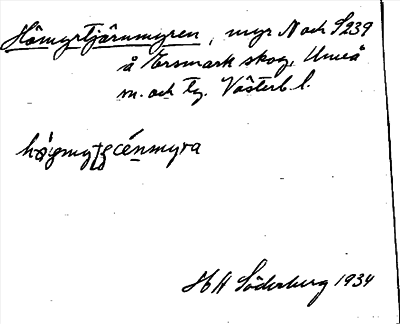 Hömyrtjärnmyren, myr N och S 239
å Ersmark skog, Umeå
m. och tg. Västerb. l.
myra
H H Söderberg 1934